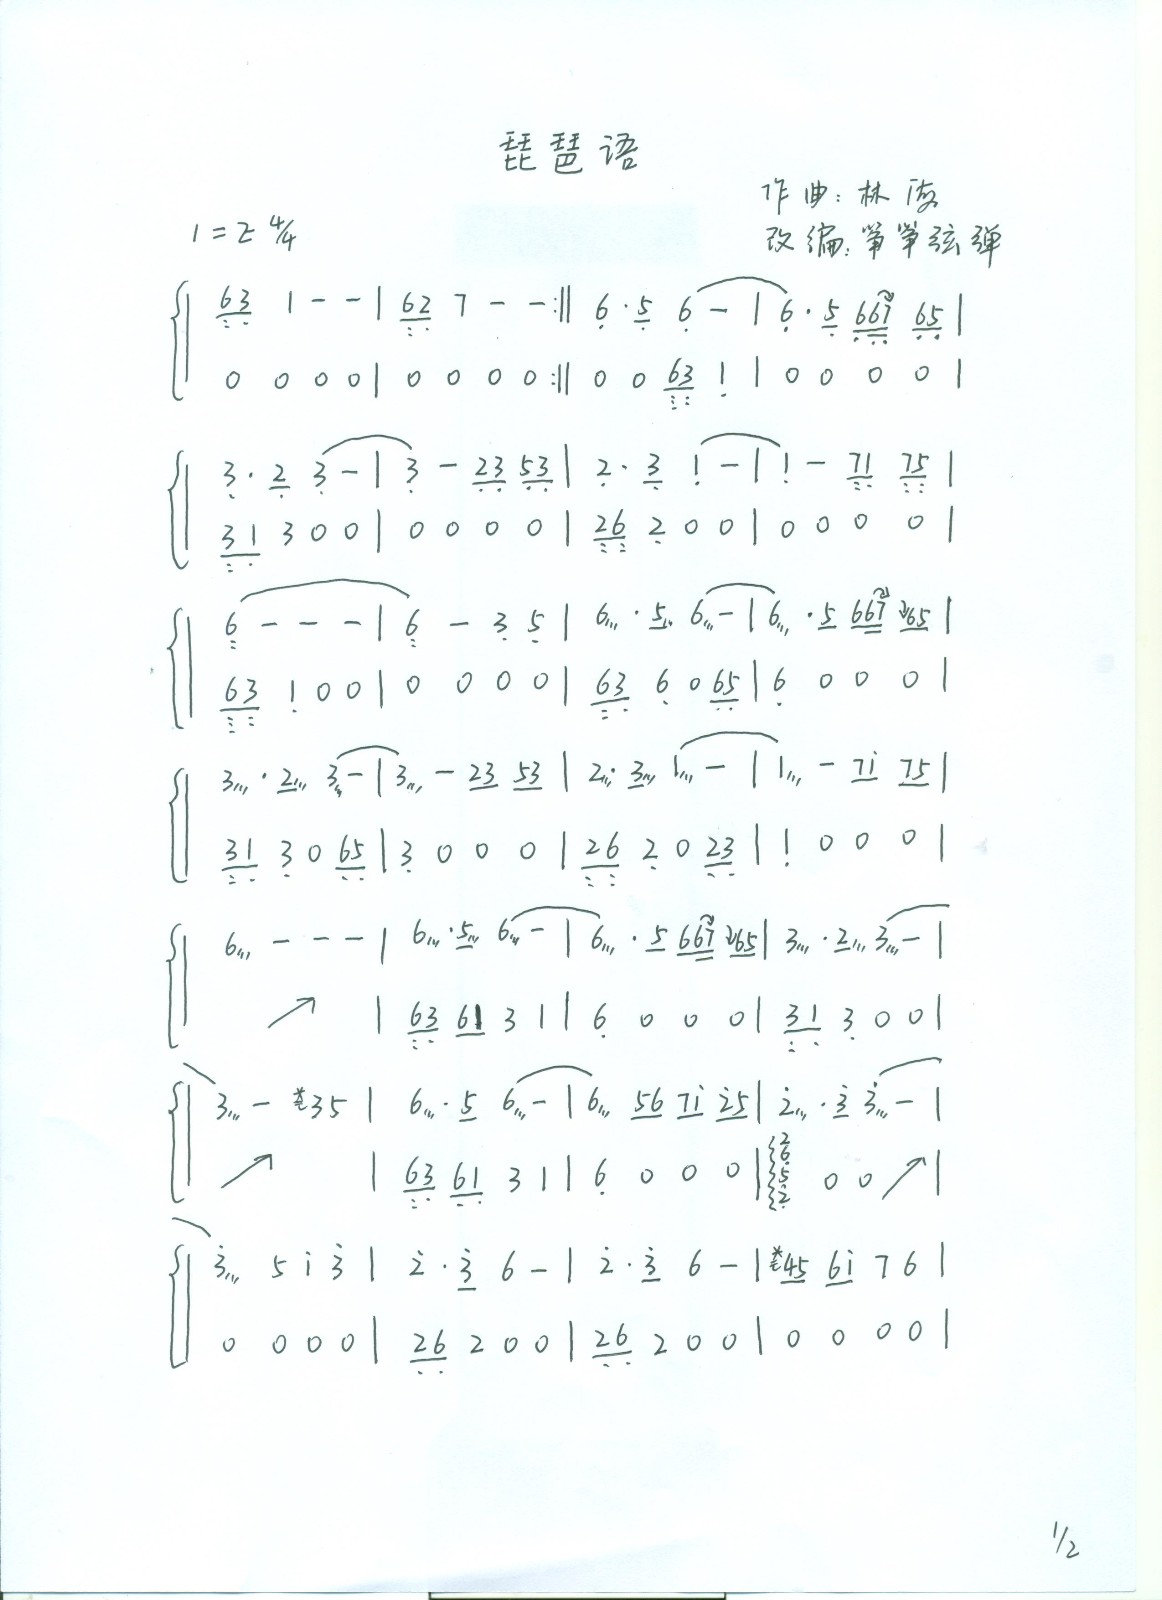 琵琶语
作曲:林海
1=D 4/4
改编:筝筝弦弹
63 1 - - | 62 7 - - :‖ 6 · 5 6 - | 6 · 5 667 65 |
0 0 0 0 | 0 0 0 0 :‖ 0 0 63 1 | 0 0 0 0 |
3 · 2 3 - | 3 - 23 53 | 2 · 3 1 - | 1 - 71 75 |
31 3 0 0 | 0 0 0 0 | 26 2 0 0 | 0 0 0 0 |
6 - - - | 6 - 3 5 | 6 · 5 6 - | 6 · 5 667 65 |
63 1 0 0 | 0 0 0 0 | 63 6 0 65 | 6 0 0 0 |
3 · 2 3 - | 3 - 23 53 | 2 · 3 1 - | 1 - 71 75 |
31 3 0 65 | 3 0 0 0 | 26 2 0 23 | 1 0 0 0 |
6 - - - | 6 · 5 6 - | 6 · 5 667 65 | 3 · 2 3 - |
↗ | 63 61 3 1 | 6 0 0 0 | 31 3 0 0 |
3 - 3 5 | 6 · 5 6 - | 6 56 71 25 | 2 · 3 3 - |
↗ | 63 61 3 1 | 6 0 0 0 | 2 6 5 2 0 0 ↗ |
3 5 1 3 | 2 · 3 6 - | 2 · 3 6 - | 45 61 7 6 |
0 0 0 0 | 26 2 0 0 | 26 2 0 0 | 0 0 0 0 |
1/2